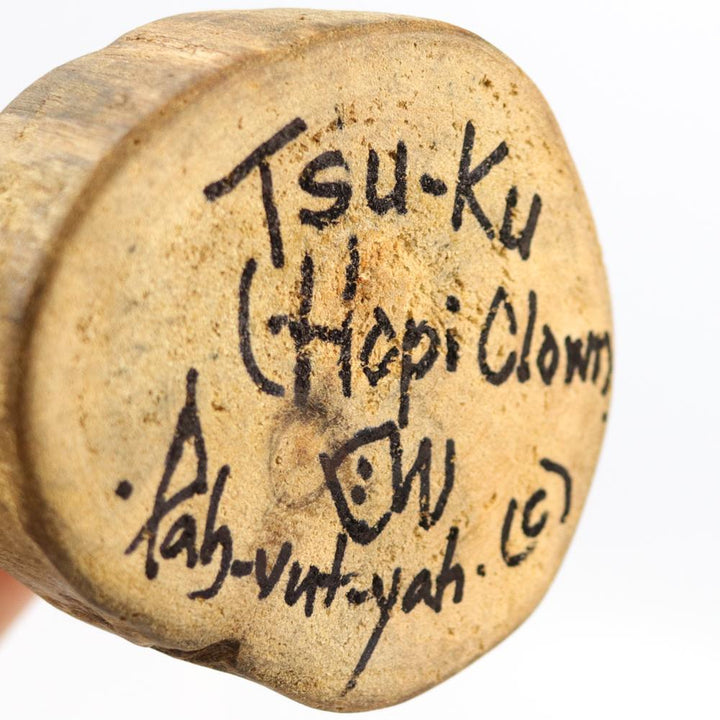 Tsu-Ku
(Hopi Clown)
W
.Pah-vut-yah. (c)